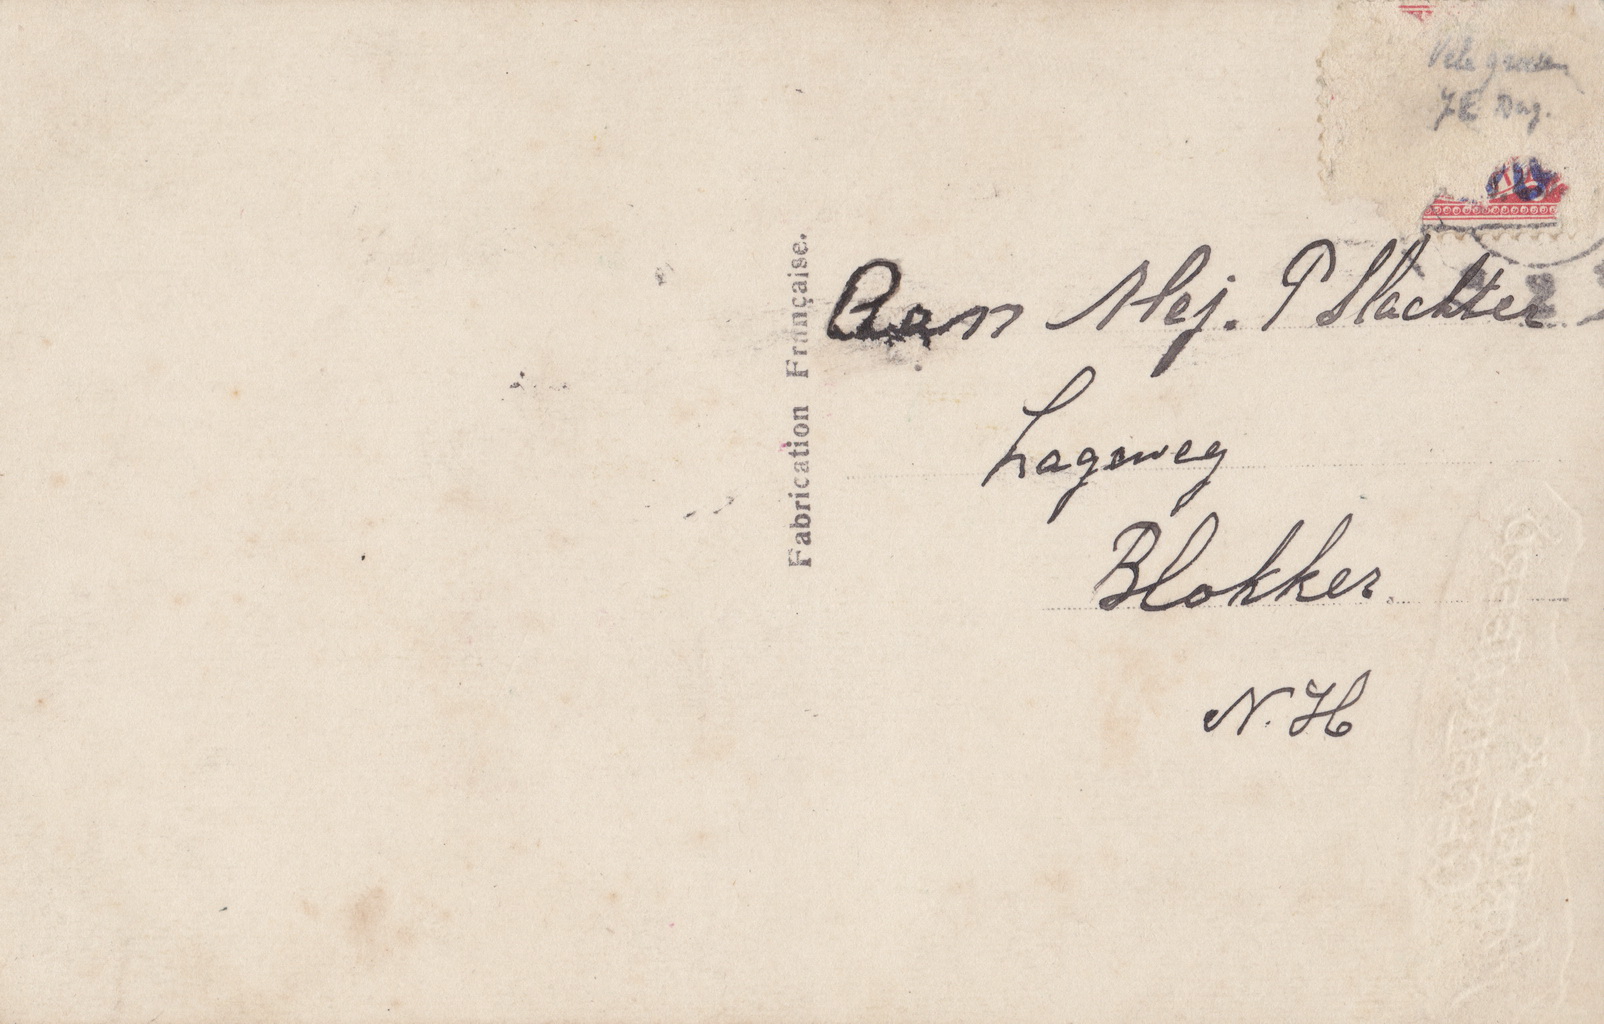 Vele groeten
Fabrication Française.
Aan Mej. P Slachter
Lageweg
Blokker
N.H